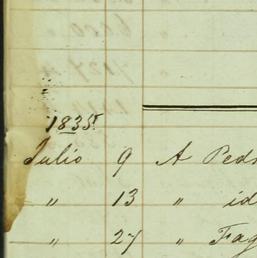 1835
Julio 9 A Ped
" 13 " id
" 27 " Fag